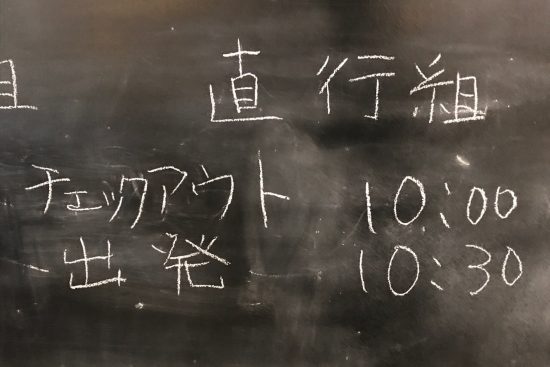 組 直行組
チェックアウト 10:00
出発 10:30